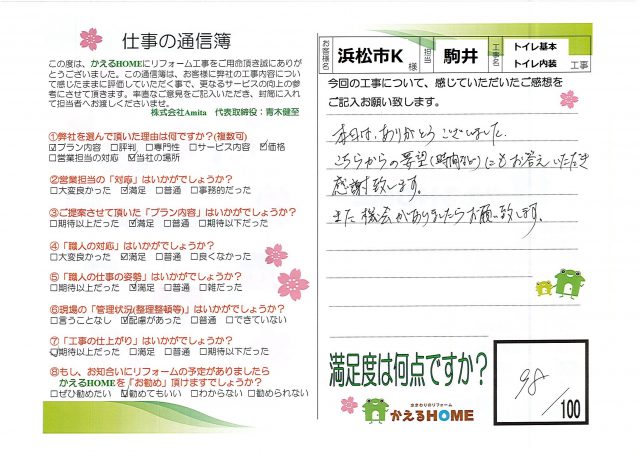 仕事の通信簿
この度は、かえるHOMEにリフォーム工事をご用命頂き誠にありが
とうございました。この通信簿は、お客様に弊社の工事内容につい
て感じたままに評価していただく事で、更なるサービスの向上の参
考にさせて頂きます。率直なご意見をご記入いただき、封筒に入れ
て担当者へお渡しくださいませ。
株式会社Amita 代表取締役：青木健至
①弊社を選んで頂いた理由は何ですか?(複数可)
☑プラン内容 □評判 □専門性 □サービス内容 ☑価格
□営業担当の対応 ☑当社の場所
②営業担当の「対応」はいかがでしょうか？
□大変良かった ☑満足 □普通 □事務的だった
③ご提案させて頂いた「プラン内容」はいかがでしょうか？
□期待以上だった ☑満足 □普通 □期待以下だった
④「職人の対応」はいかがでしょうか？
□大変良かった ☑満足 □普通 □良くなかった
⑤「職人の仕事の姿勢」はいかがでしょうか？
□期待以上だった ☑満足 □普通 □雑だった
⑥現場の「管理状況(整理整頓等)」はいかがでしょうか？
□言うことなし ☑配慮があった □普通 □できていない
⑦「工事の仕上がり」はいかがでしょうか？
☑期待以上だった □満足 □普通 □期待以下だった
⑧もし、お知合いにリフォームの予定がありましたら
かえるHOMEを「お勧め」頂けますでしょうか？
□ぜひ勧めたい ☑勧めてもいい □わからない □勧められない
お客様名 浜松市K 様 担当 駒井 工事名 トイレ基本 トイレ内装 工事
今回の工事について、感じていただいたご感想を
ご記入お願い致します。
本日は、ありがとうございました。
こちらからの要望(時間など)にもお答えいただき
感謝致します。
また機会がありましたらお願い致します。
満足度は何点ですか？
98/100
水まわりのリフォーム
かえるHOME